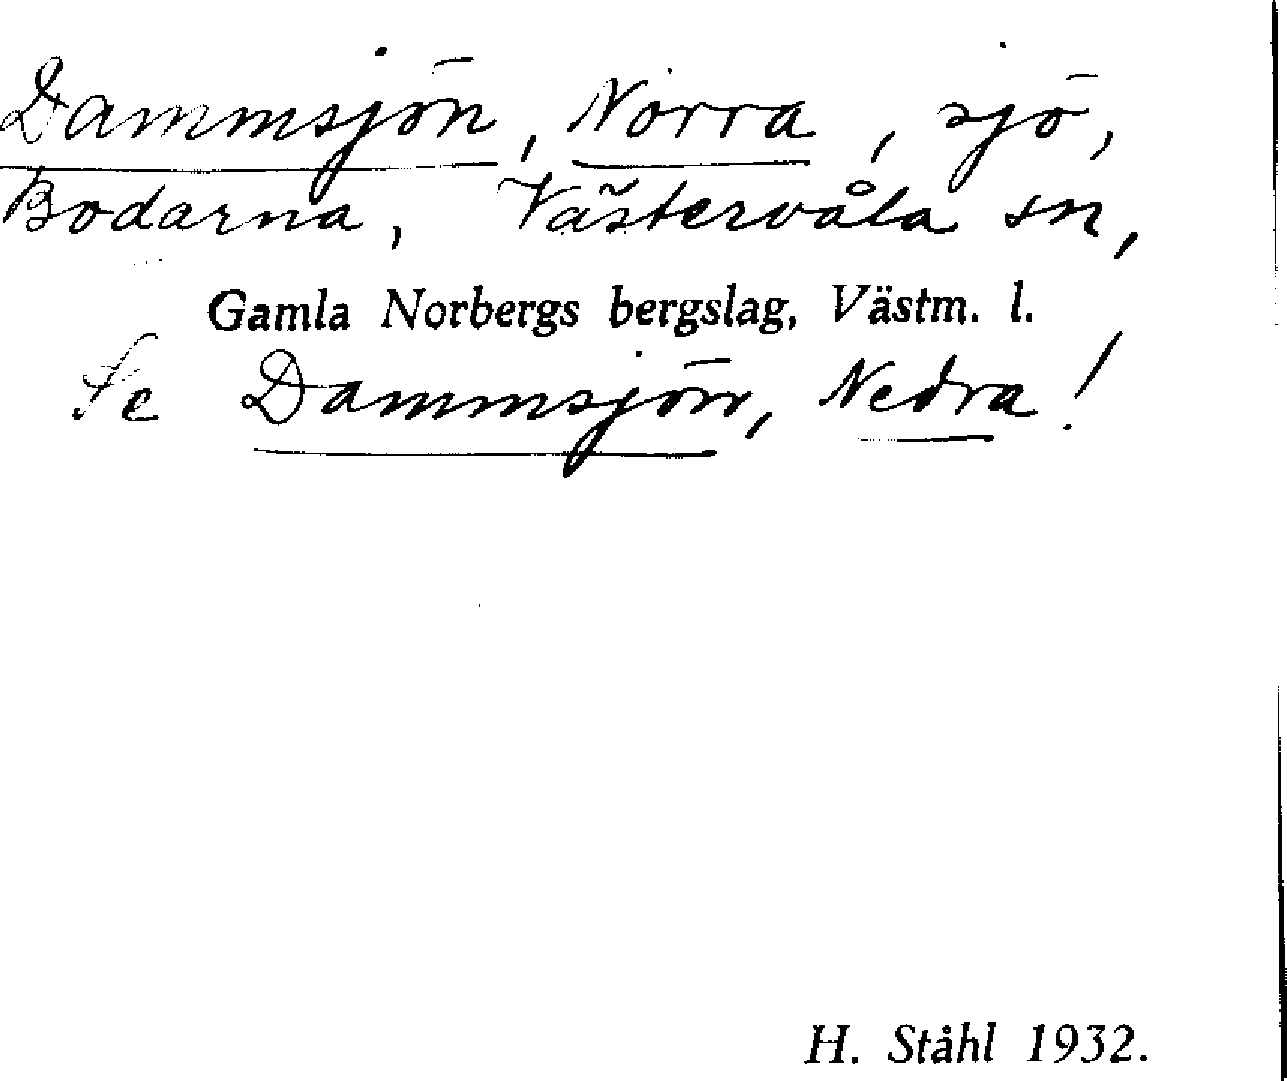 Dammsjön, Norra, sjö,
Bodarna, Västervåla sn,
Gamla Norbergs bergslag, Västm. l.
Se Dammsjön, Nedra!
H. Ståhl 1932.